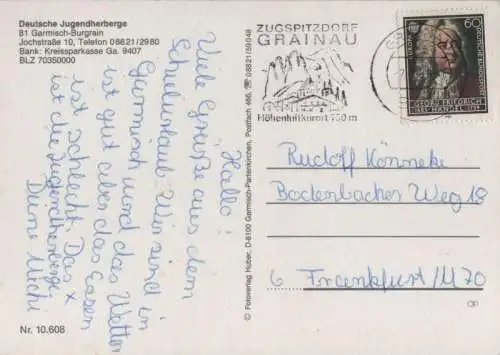 Deutsche Jugendherberge
81 Garmisch-Burgrain
Jochstraße 10, Telefon 08821/2980
Bank: Kreissparkasse Ga. 9407
BLZ 70350000
Hallo!
Viele Grüße aus dem
Schulurlaub. Wir sind in
Garmisch und das Wetter
ist gut aber das Essen
ist schlecht. Das x
ist die Jugendherberge.
Deine Michi
Nr. 10.608
© Fotoverlag Huber, D-8100 Garmisch-Partenkirchen, Postfach 466, ☎ 08821/59048
ZUGSPITZDORF
GRAINAU
Höhenluftkurort 750 m
EUROPA
60
DEUTSCHE BUNDESPOST
GEORG FRIEDRICH
Rudolf Könneke
Bodenbacher Weg 18
6 Frankfurt/M 70